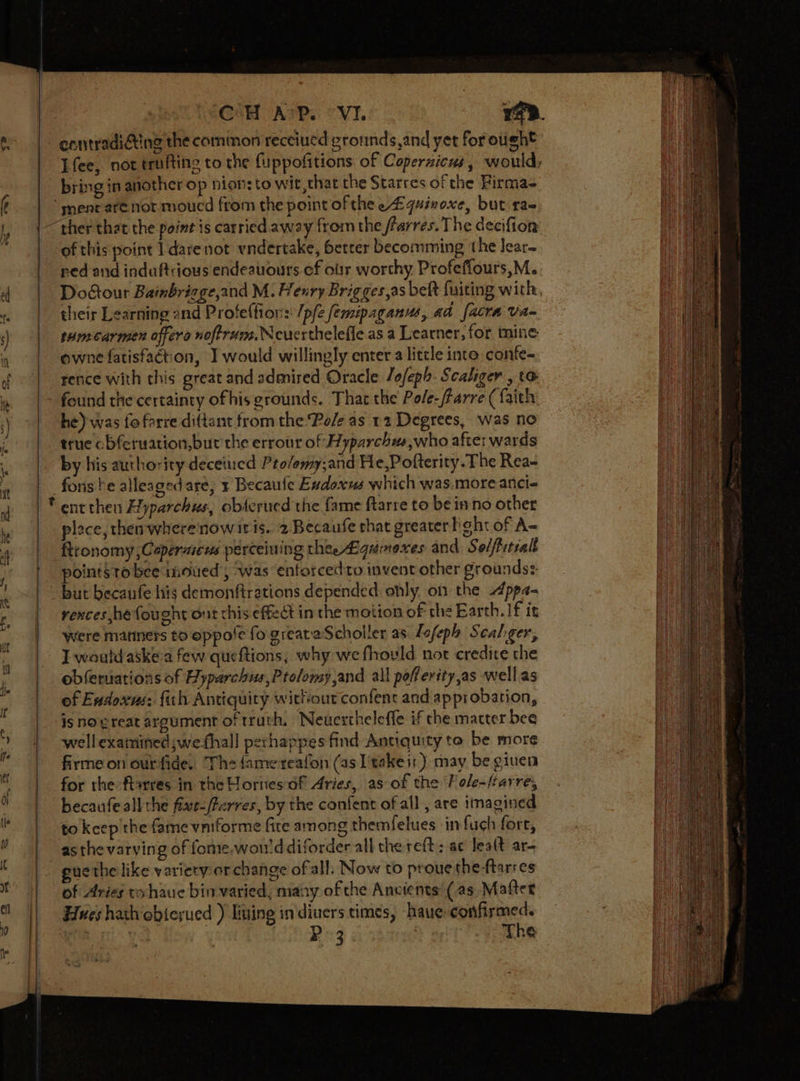 CHAP. VI.
contradicting the common receiued grounds, and yet for ought
I see, not trusting to the suppositions of Copernicus, would,
bring in another opinion: to wit, that the Starres of the Firma-
ment are not moued from the point of the Æquinoxe, but ra-
ther that the point is carried away from the starres. The decision
of this point I dare not vndertake, better becomming the lear-
ned and industrious endeauours of our worthy Professours, M.
Doctour Bainbrigge, and M. Henry Brigges, as best suiting with
their Learning and Profession: Ipse semipaganus, ad sacra va-
tum carmen offero nostrum. Neuerthelesse as a Learner, for mine
owne satisfaction, I would willingly enter a little into confe-
rence with this great and admired Oracle Ioseph Scaliger, to
found the certainty of his grounds. That the Pole-starre (saith
he) was so farre distant from the Pole as 12 Degrees, was no
true obseruation, but the errour of Hyparchus, who afterwards
by his authority deceiued Ptolomy; and He, Posterity. The Rea-
sons he alleaged are, 1 Because Eudoxus which was more anci-
ent then Hyparchus, obserued the same starre to be in no other
place, then where now it is. 2 Because that greater light of A-
stronomy, Copernicus perceiuing the Æquinoxes and Solstitiall
points to bee moued, was enforced to invent other grounds:
but because his demonstrations depended only on the Appa-
rences, he sought out this effect in the motion of the Earth. If it
were manners to oppose so great a Scholler as Ioseph Scaliger,
I would aske a few questions, why we should not credite the
obseruations of Hyparchus, Ptolomy, and all posterity, as well as
of Eudoxus: sith Antiquity without consent and approbation,
is no great argument of truth. Neuerthelesse if the matter bee
well examined, we shall perhappes find Antiquity to be more
firme on our side. The same reason (as I take it) may be giuen
for the starres in the Hornes of Aries, as of the Pole-starre,
because all the fixt-starres, by the consent of all, are imagined
to keep the same vniforme site among themselues in such sort,
as the varying of some would disorder all the rest: at least ar-
gue the like variety or change of all. Now to proue the starres
of Aries to haue bin varied, many of the Ancients (as Master
Hues hath obserued) liuing in diuers times, haue confirmed.
P 3 The